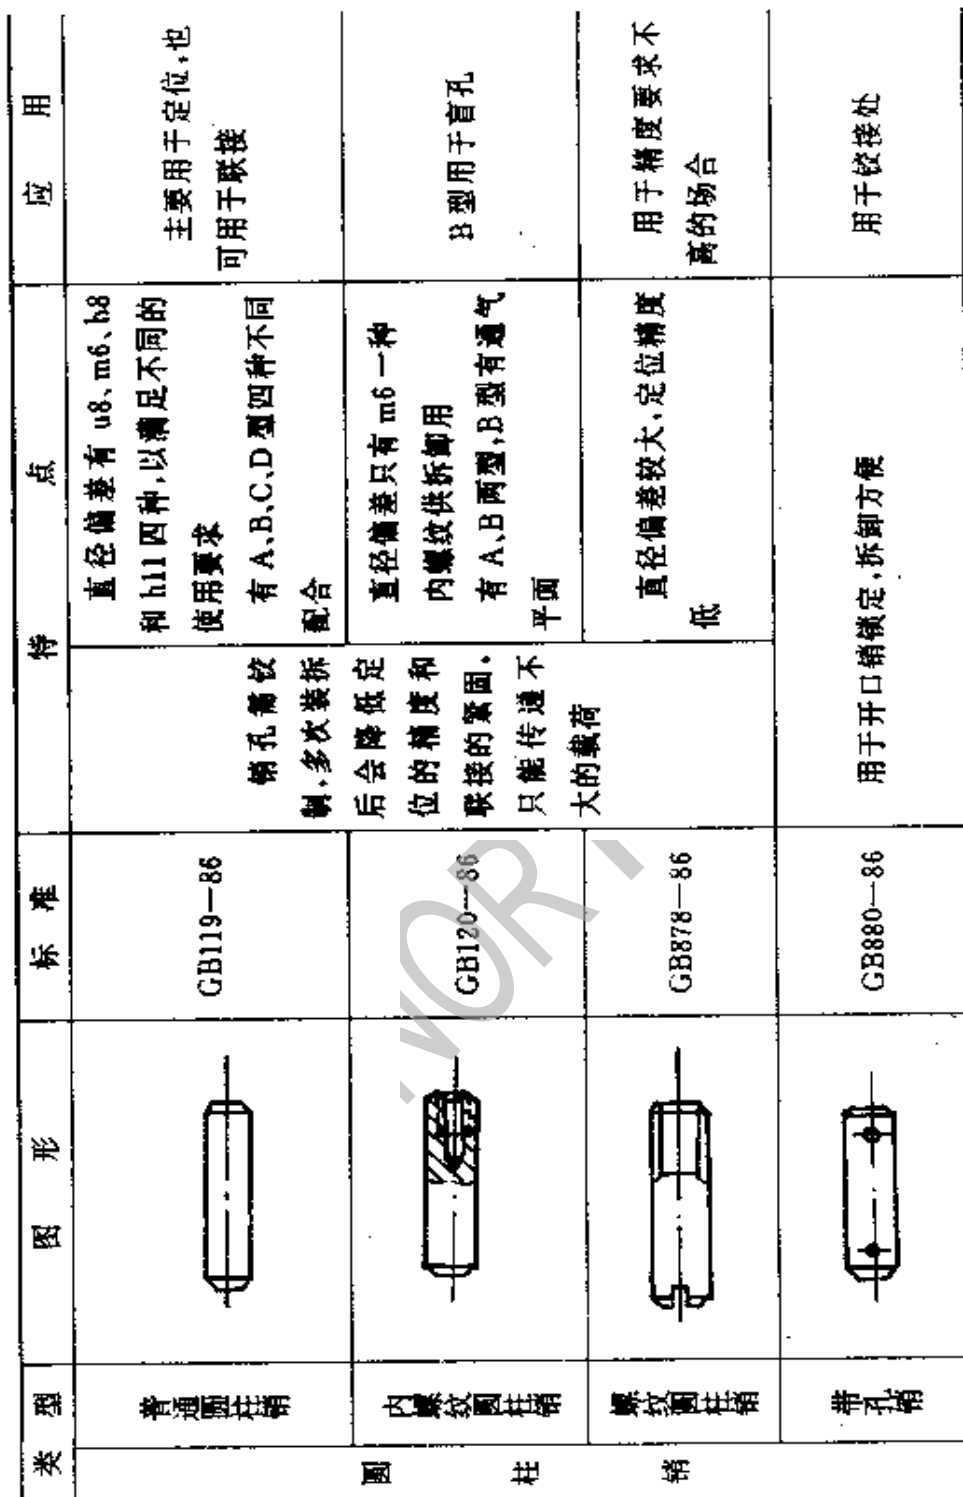 类 型
图 形
标 准
特 点
应 用
圆 柱 销
普通圆柱销
GB119—86
销孔需铰
制,多次装拆
后会降低定
位的精度和
联接的紧固。
只能传递不
大的载荷
直径偏差有 u8、m6、h8
和 h11 四种,以满足不同的
使用要求
有 A、B、C、D 型四种不同
配合
主要用于定位,也
可用于联接
内螺纹圆柱销
GB120—86
直径偏差只有 m6 一种
内螺纹供拆卸用
有 A、B 两型,B 型有通气
平面
B 型用于盲孔
螺纹圆柱销
GB878—86
直径偏差较大,定位精度
低
用于精度要求不
高的场合
带孔销
GB880—86
用于开口销锁定,拆卸方便
用于铰接处
WOR